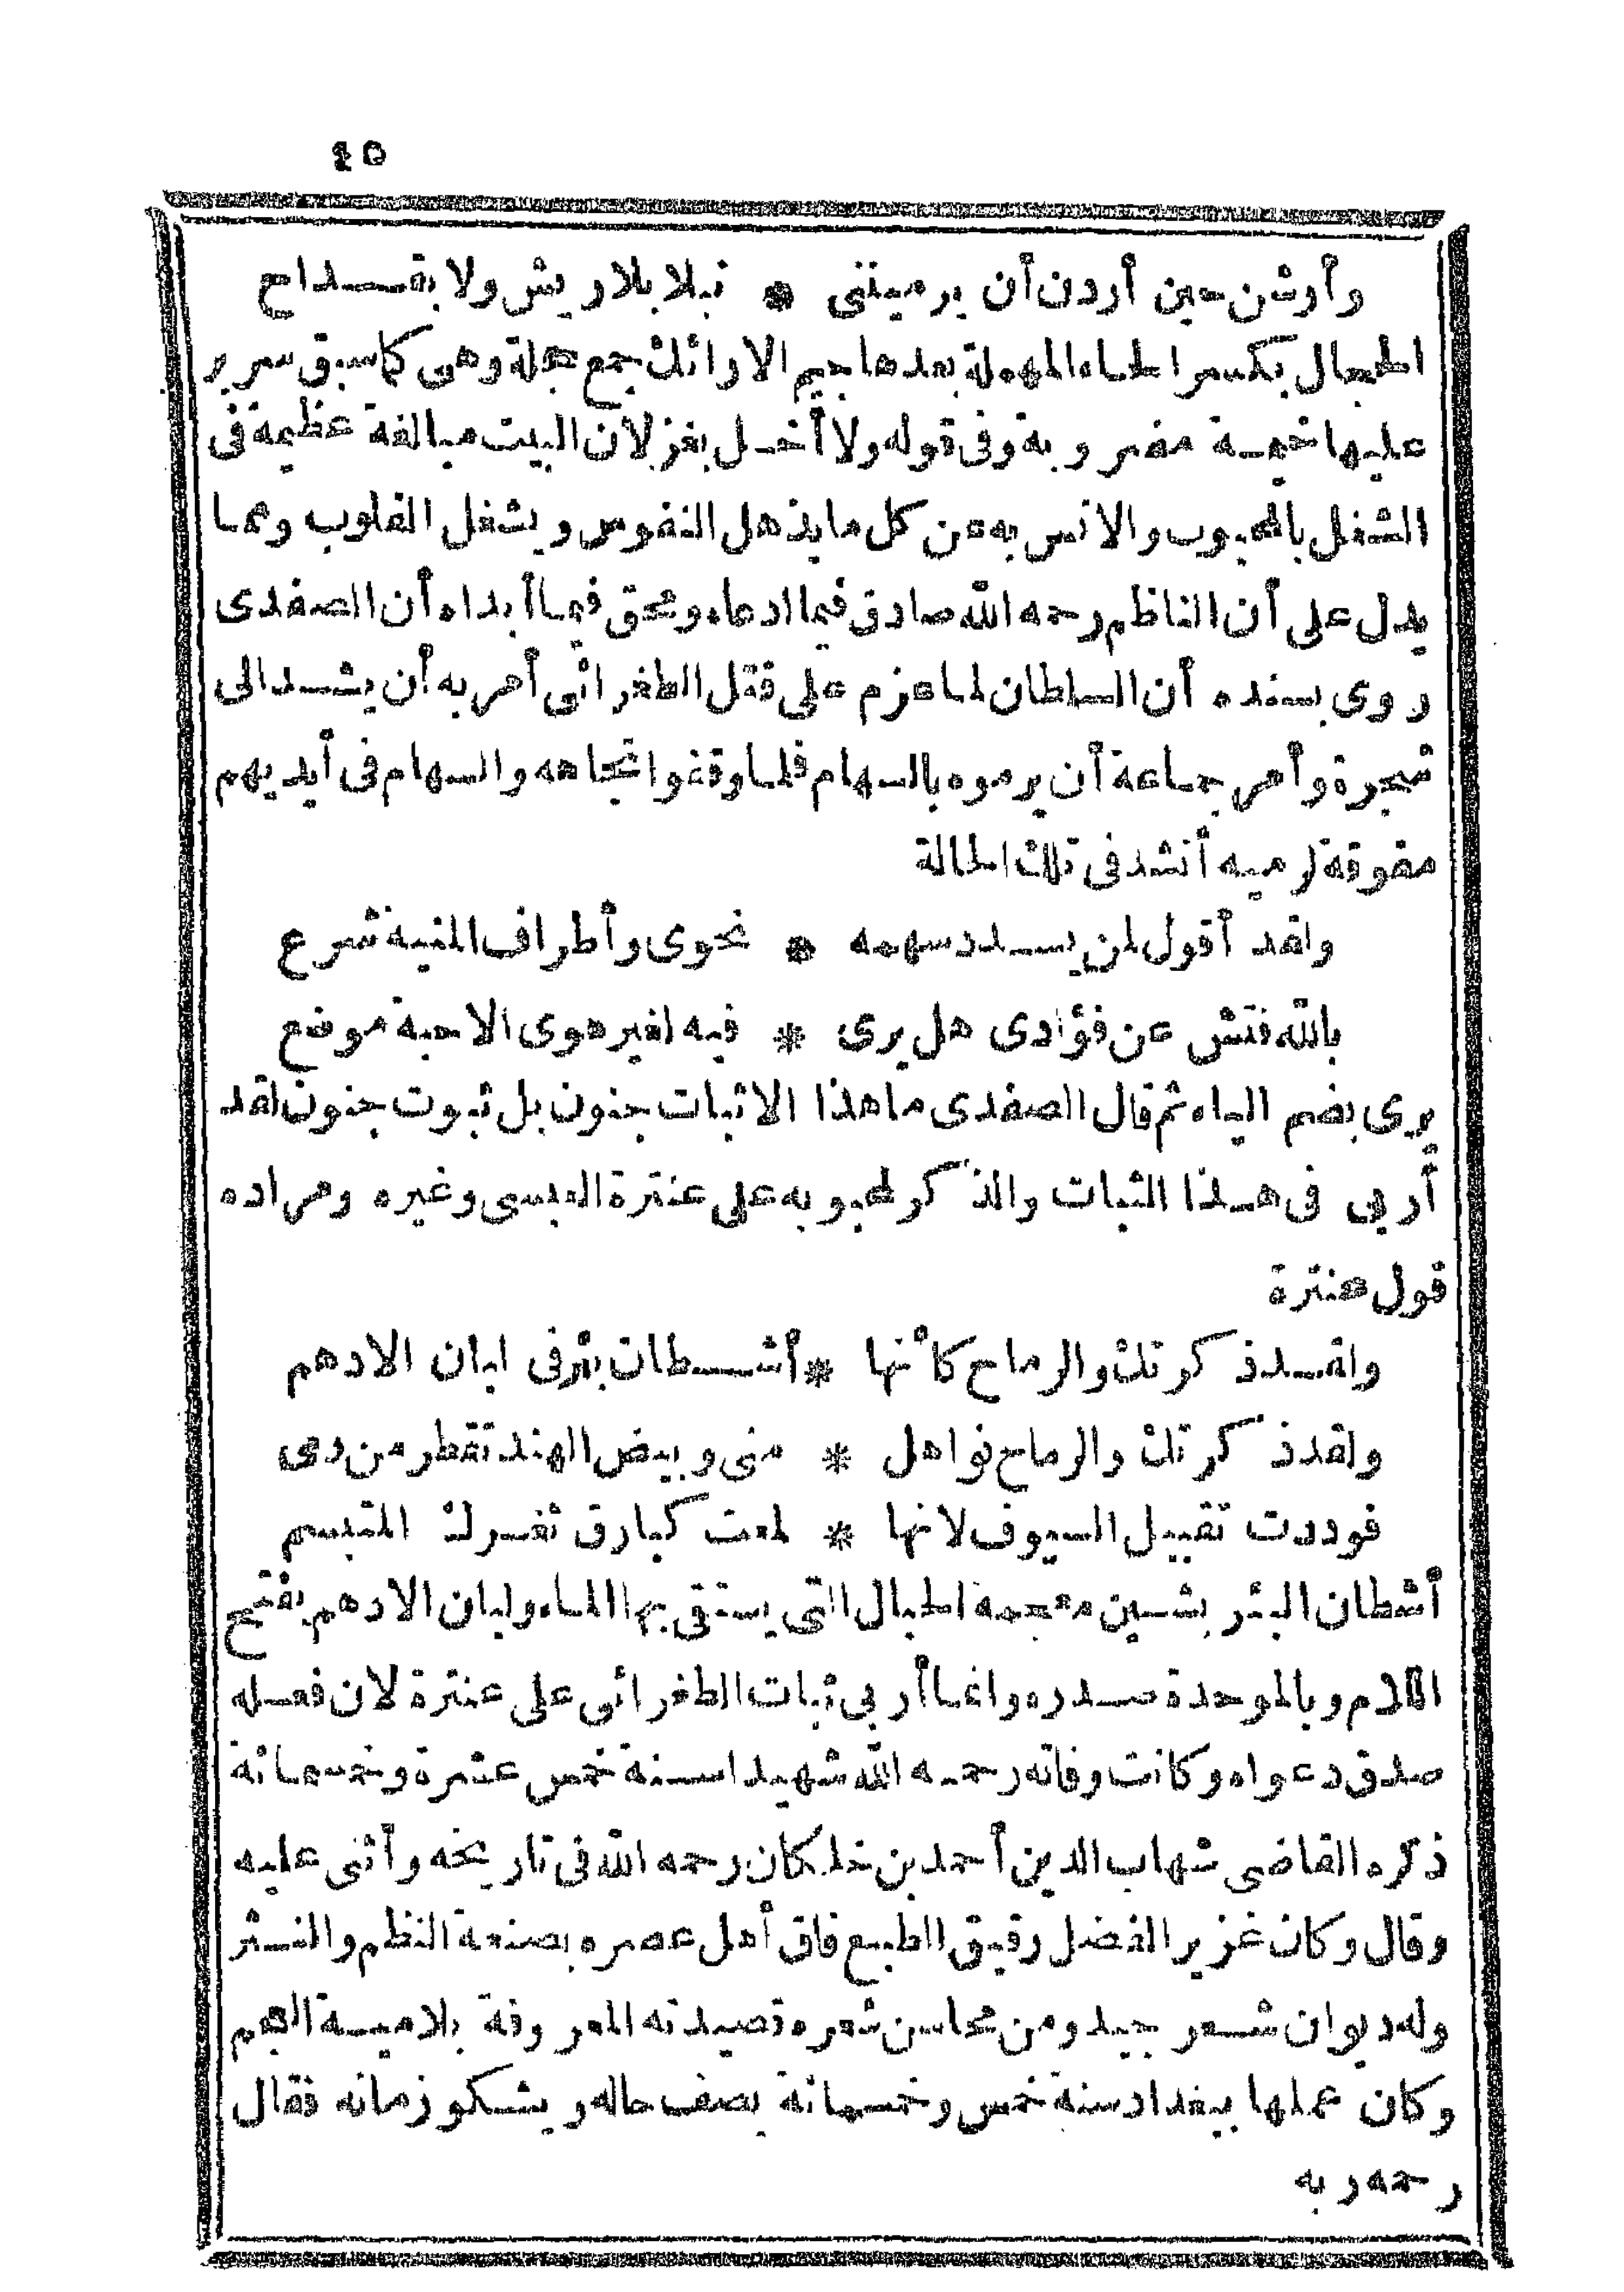 ٤٥
وأرشن حين أردن أن يرميننى * نبلا بلا ريش ولا بقـــداح
الحجال بكسر الحاء المهملة بعدها جيم الارائك جمع حجلة وهى كما سبق سرير
عليها خيمة مضروبة وفى قوله ولا أخل بغزلان البيت مبالغة عظيمة فى
الشغل بالمحبوب والانس به عن كل ما يذهل النفوس ويشغل القلوب ومما
يدل على أن الناظم رحمه الله صادق فيما ادعاه ومحق فيما أبداه أن الصفدى
روى بسنده أن السلطان لما عزم على قتل الطغرائى أمر به أن يشــد الى
شجرة وأمر جماعة أن يرموه بالسهام فلما وقفوا تجاهه والسهام فى أيديهم
مفوقة لرميه أنشد فى تلك الحالة
ولقد أقول لمن يســدد سهمه * نحوى وأطراف المنية شرع
بالله فتش عن فؤادى هل يرى * فيه لغير هوى الاحبة موضع
يرى بضم الياء ثم قال الصفدى ما هذا الاثبات جنون بل ثبوت جنون لقد
أربى فى هــذا الثبات والذكر لمحبوبه على عنترة العبسى وغيره ومراده
قول عنترة
ولقــد ذكرتك والرماح كأنها * أشــــطان بئر فى لبان الادهم
ولقد ذكرتك والرماح نواهل * منى وبيض الهند تقطر من دمى
فوددت تقبيل السيوف لانها * لمعت كبارق ثغــرك المتبسم
أشطان البئر بشــين معجمة الحبال التى يستقى بها الماء ولبان الادهم بفتح
اللام وبالموحدة صــدره وانما أربى ثبات الطغرائى على عنترة لان فعــله
صدق دعواه وكانت وفاته رحمــه الله شهيدا ســنة خمس عشرة وخمسمائة
ذكره القاضى شهاب الدين أحمد بن خلكان رحمه الله فى تاريخه وأثنى عليه
وقال وكان غزير الفضل رقيق الطبع فاق أهل عصره بصنعة النظم والنــثر
وله ديوان شــعر جيد ومن محاسن شعره قصيدته المعروفة بلاميــة العجم
وكان عملها ببغداد سنة خمس وخمسمائة يصف حاله ويشكو زمانه فقال
رحمه ربه